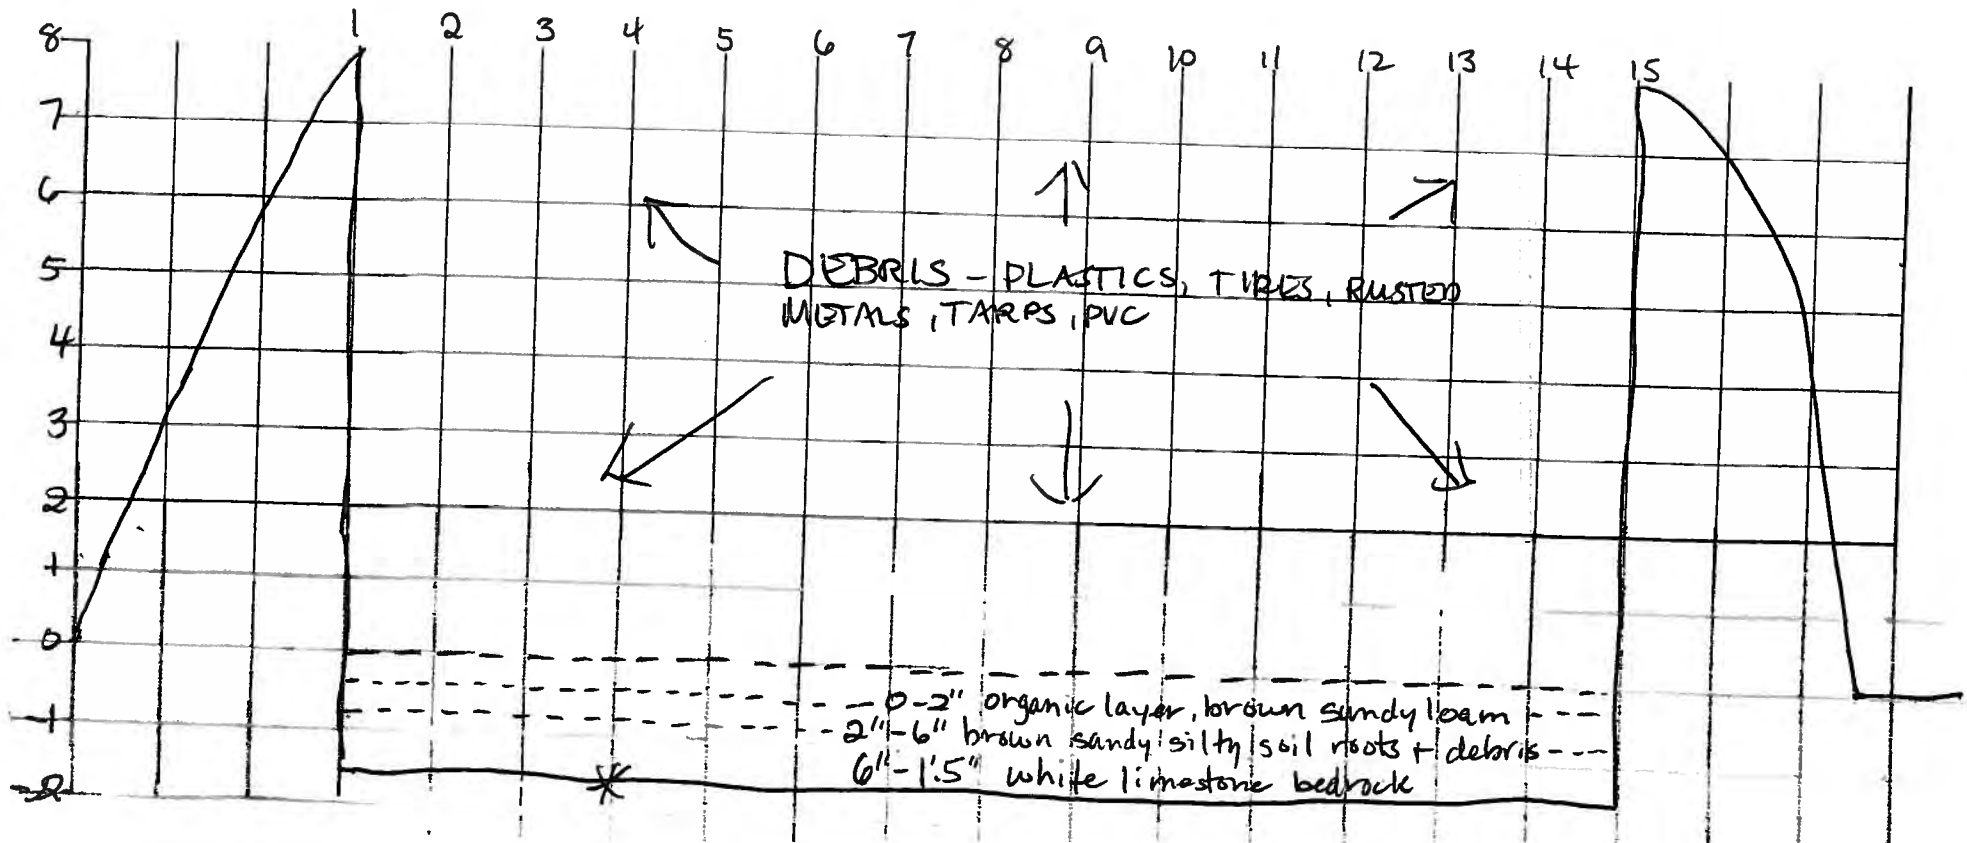 1 2 3 4 5 6 7 8 9 10 11 12 13 14 15
8
7
6
5
4
3
2
1
0
-1
-2
DEBRIS - PLASTICS, TIRES, RUSTED
METALS, TARPS, PVC
0-2" organic layer, brown sandy loam
2"-6" brown sandy silty soil roots + debris
6"-1'.5" white limestone bedrock